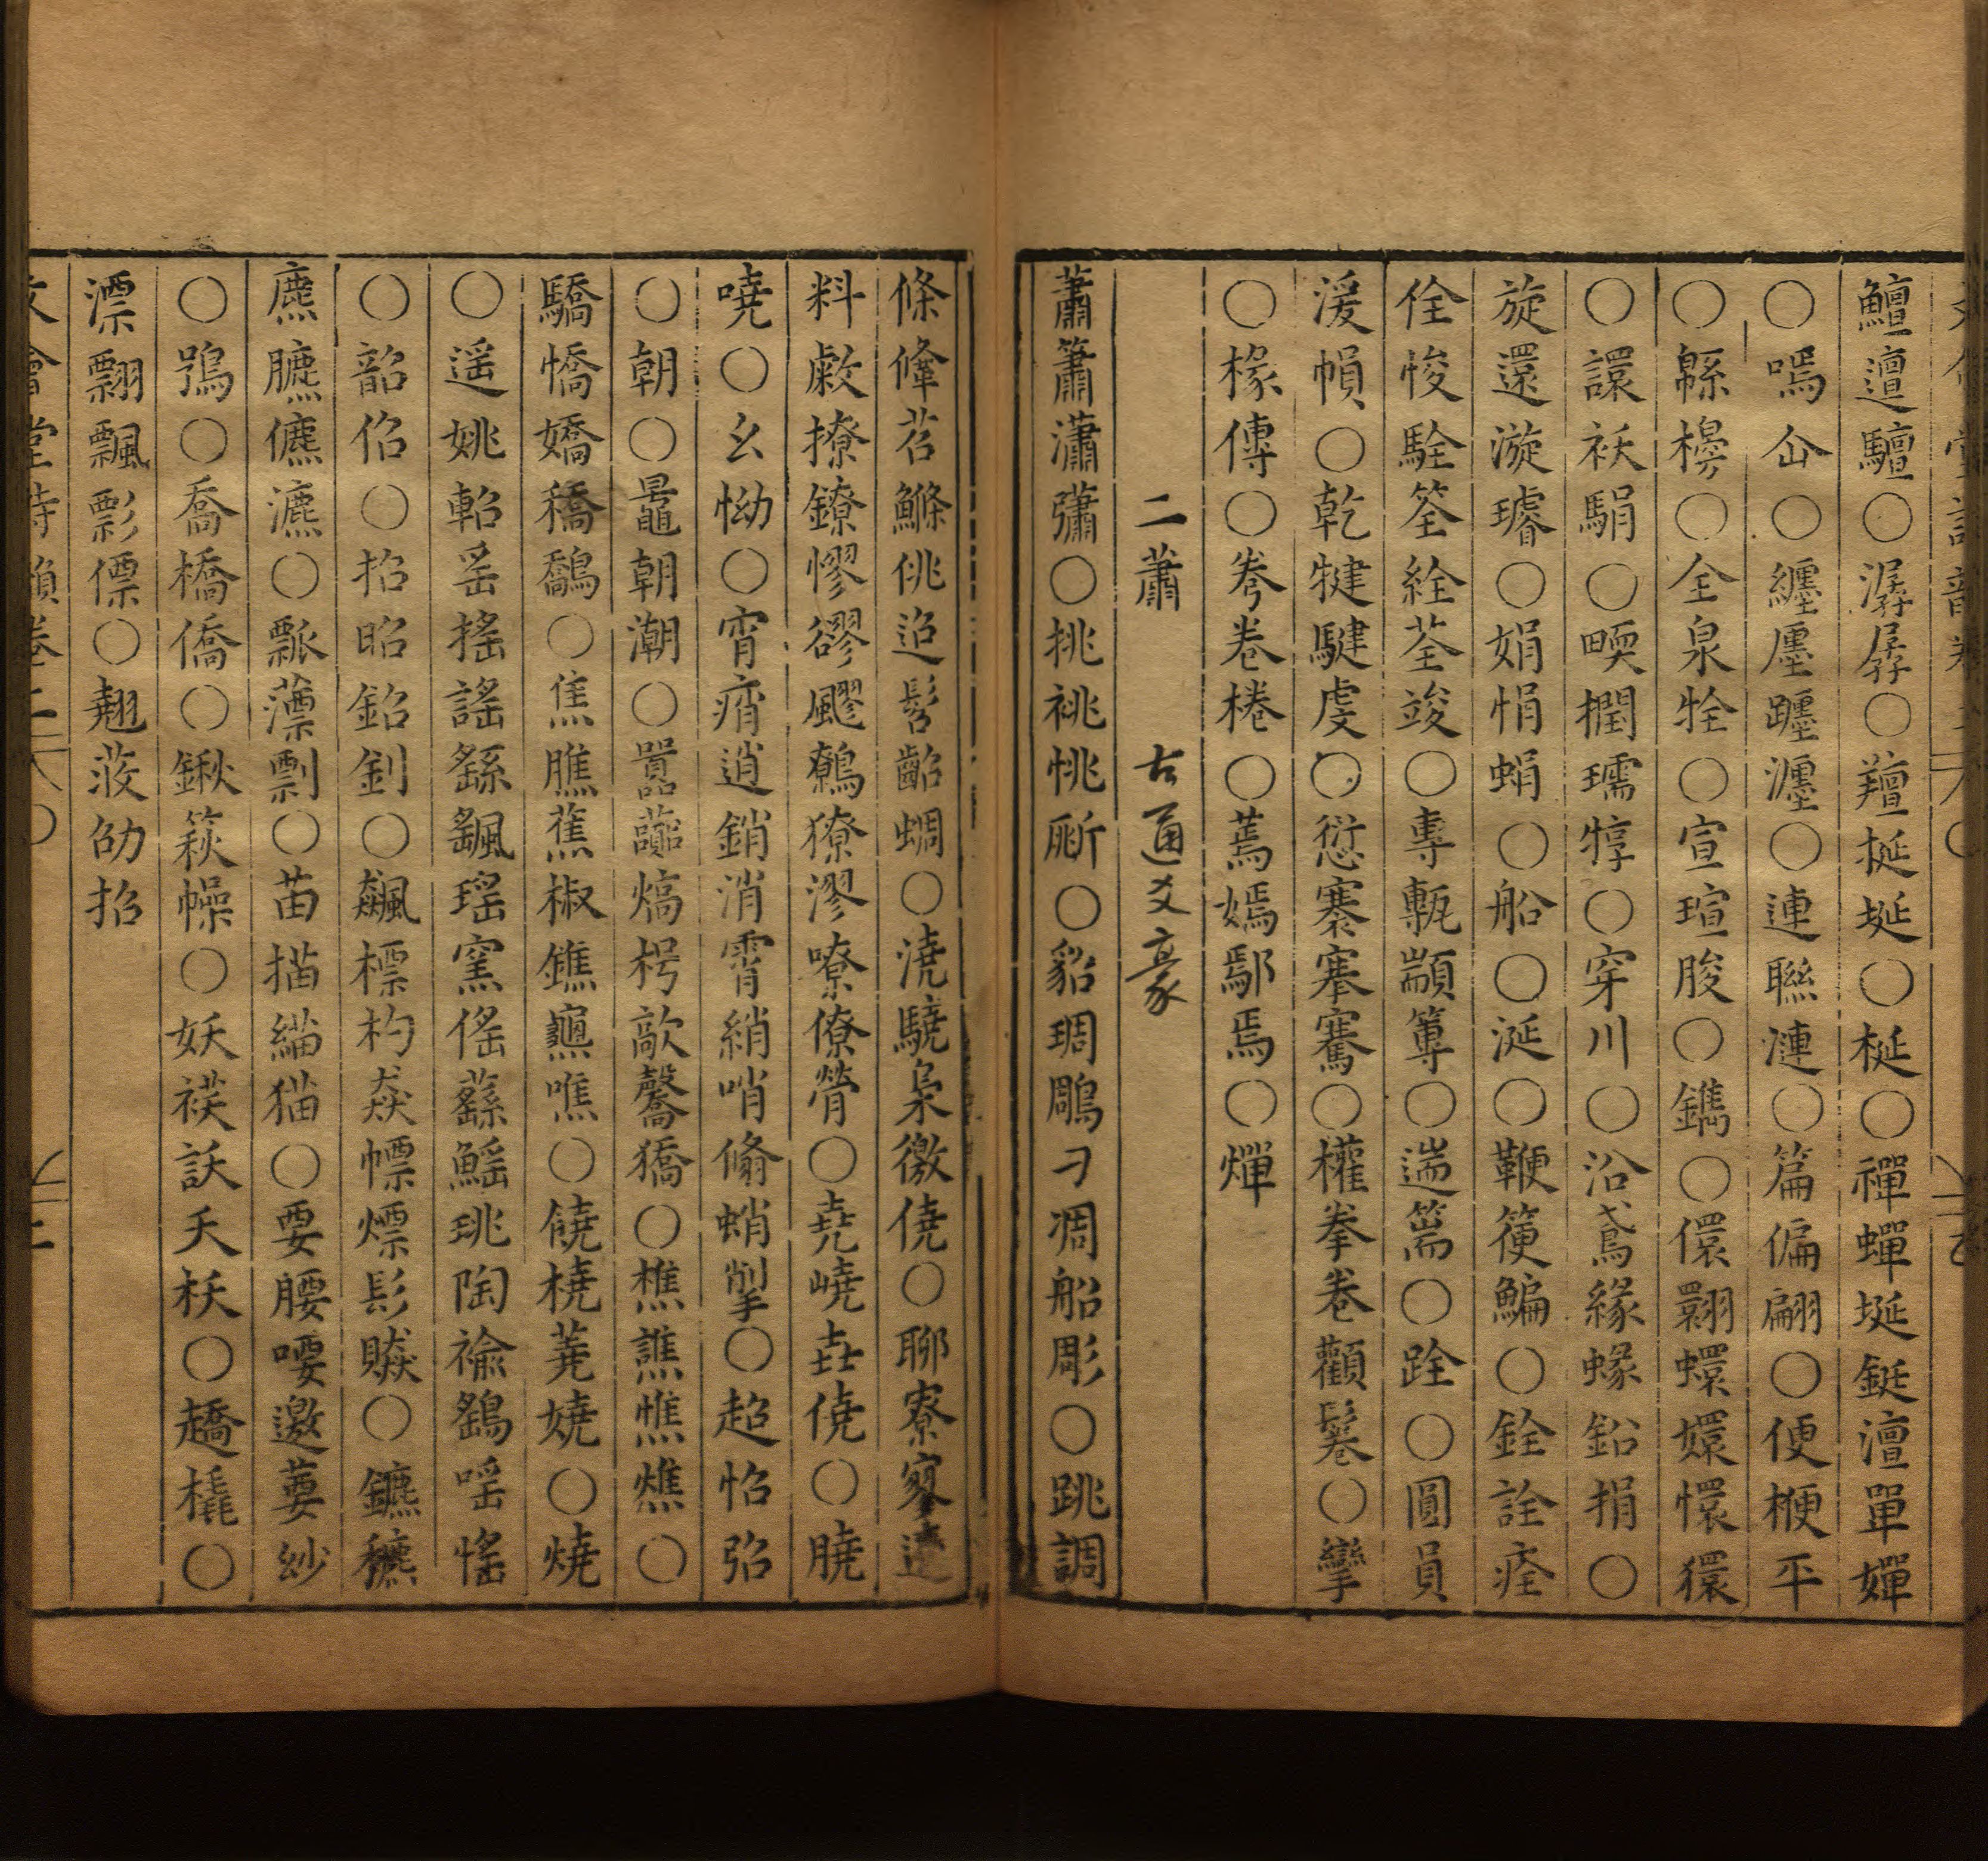 鱣邅驙○潺孱○羶挻埏○梴○禪蟬埏鋋澶單嬋
○嘕仚○纏廛躔瀍○連聯漣○篇偏翩○便楩平
○緜櫋○全泉牷○宣瑄朘○鐫○儇翾蠉嬛懁獧
○譞祆駽○㬉撋瓀犉○穿川○沿鳶緣蝝鉛捐○
旋還漩璿○娟悁蜎○船○涎○鞭箯鯿○銓詮痊
佺悛駩筌絟荃竣○專甎顓篿○遄篅○跧○圓員
湲幁○乾犍騝虔○愆褰搴騫○權拳卷顴鬈○攣
○椽傳○弮卷棬○蔫嫣鄢焉○燀
二蕭 古通爻豪
蕭簫瀟彇○挑祧恌斨○貂琱鵰刁凋船彫○跳調
條鞗苕鰷佻迢髫齠蜩○澆驍梟徼僥○聊寮寥遼
料敹撩鐐憀㺒飂鷯獠漻嘹僚膋○堯嶢垚僥○膮
嘵○幺怮○宵痟逍銷消霄綃哨翛蛸揱○超怊弨
○朝○鼂朝潮○囂虈熇枵歊髐獢○樵譙憔燋○
驕憍嬌穚鷮○焦膲蕉椒鐎龜噍○饒橈蕘嬈○燒
○遥姚軺䍃搖謠繇颻瑶窯傜蘨鰩珧陶褕鷂嗂愮
○韶佋○招昭鉊釗○飆標杓猋幖熛髟贆○鑣穮
麃臕儦瀌○瓢薸剽○苗描緢猫○要腰喓邀葽紗
○鴞○喬橋僑○鍬篍幧○妖䙄訞夭枖○趫橇○
漂翲飄彯僄○翹荍劭招